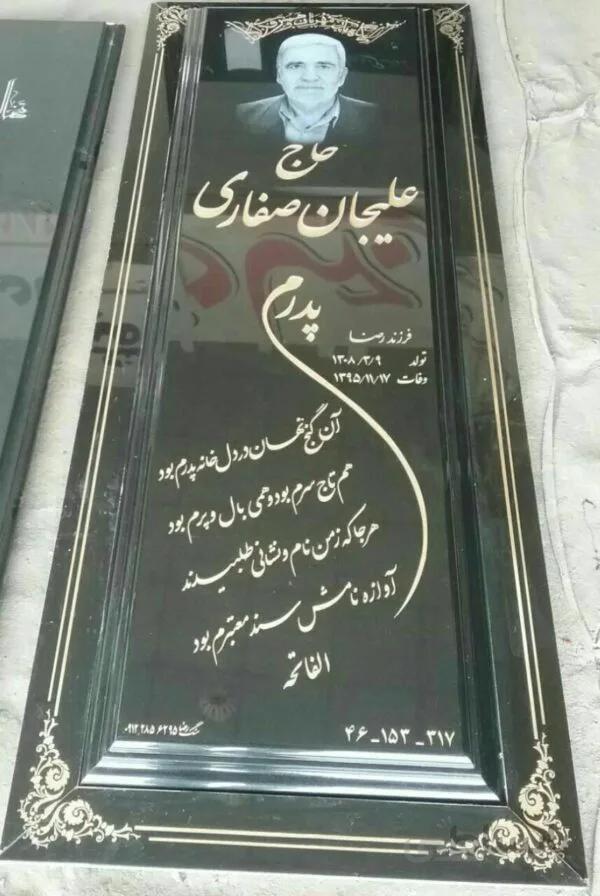 حاج
علیجان صفاری
پدرم
فرزند رضا
تولد ۱۳۰۸/۳/۹
وفات ۱۳۹۵/۱۱/۱۷
آن گنج نهان در دل خانه پدرم بود
هم تاج سرم بود و همی بال و پرم بود
هر جا که ز من نام و نشانی طلبیدند
آوازه نامش سند معتبرم بود
الفاتحه
۳۱۷ - ۱۵۳ - ۴۶
رضا ۰۹۱۲ ۲۸۵ ۶۲۹۵